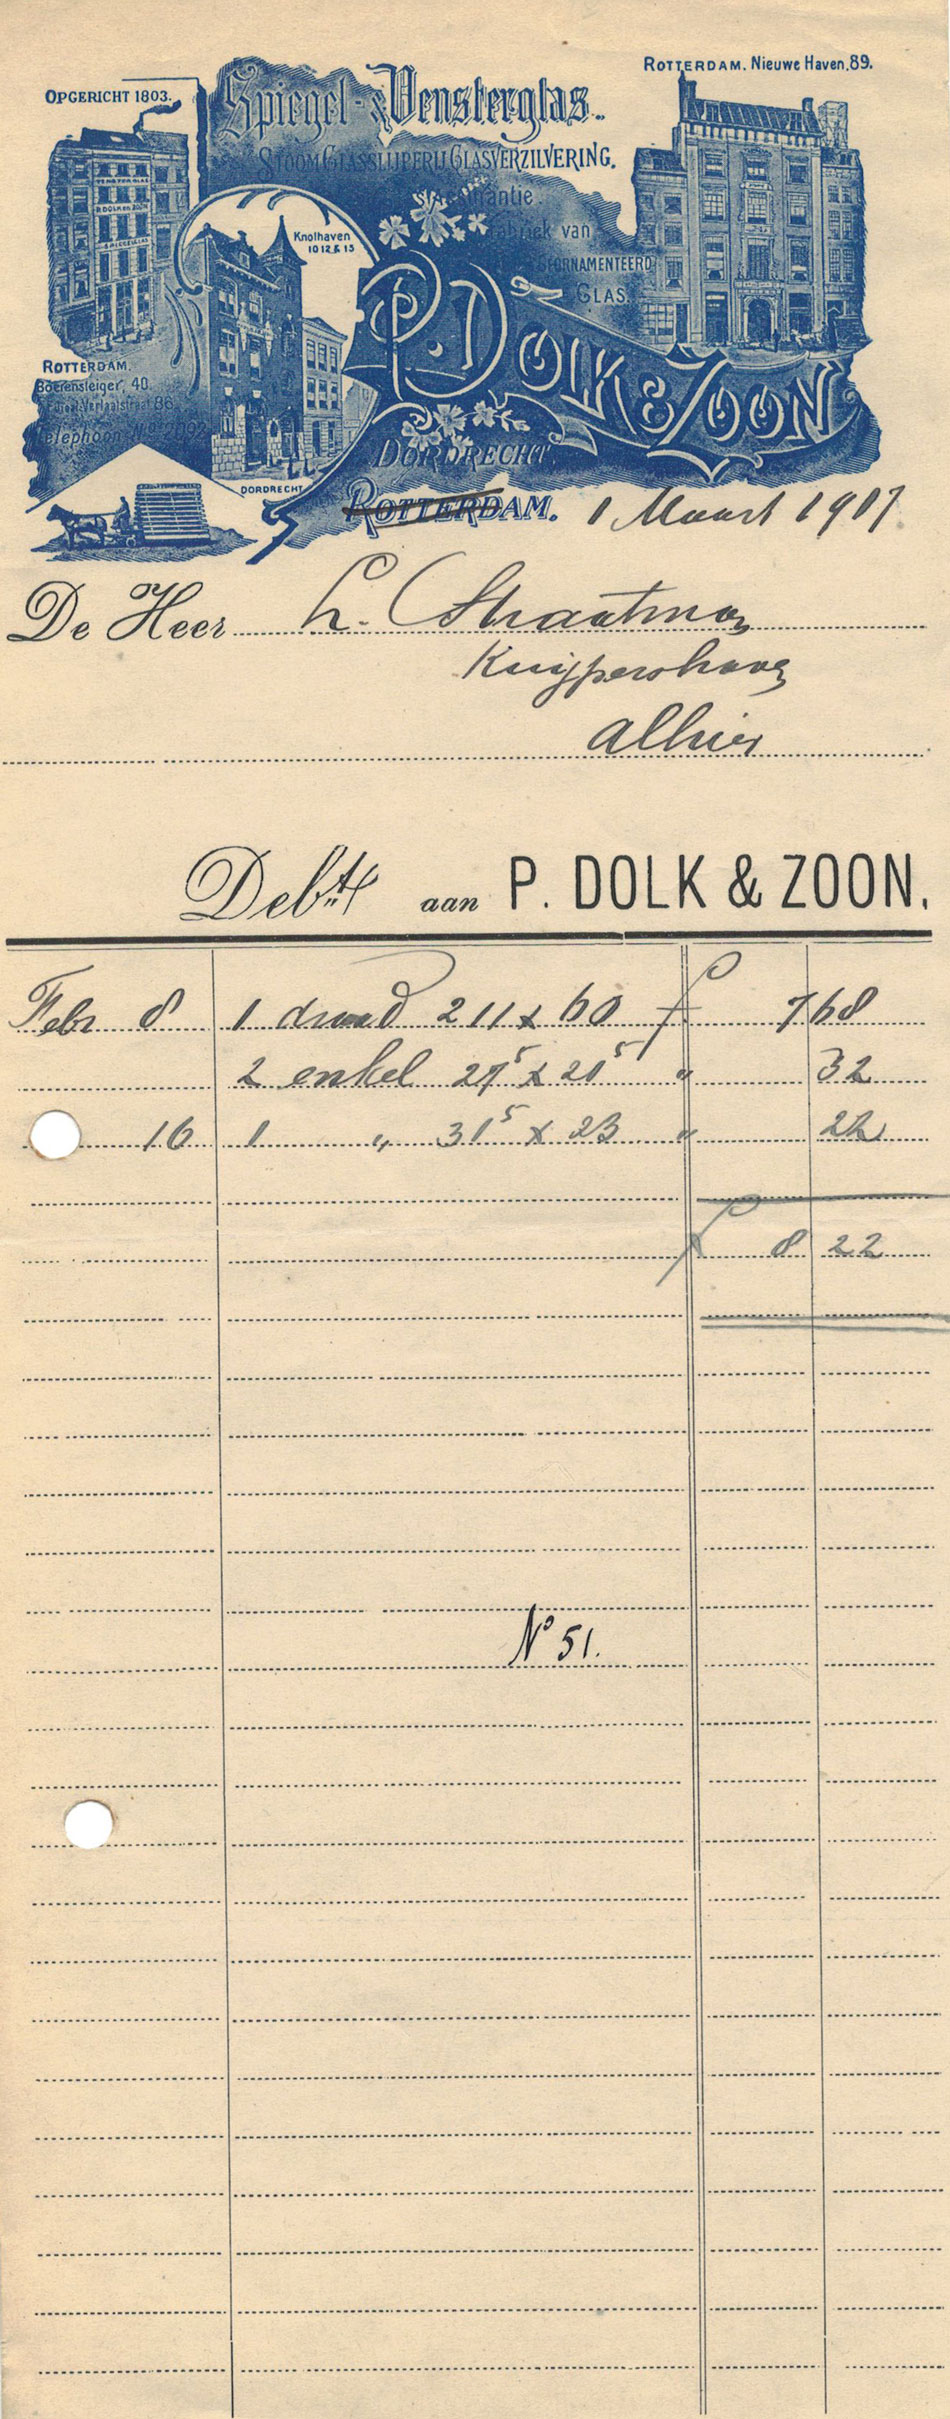 OPGERICHT 1803.
ROTTERDAM. Nieuwe Haven.89.
Spiegel- & Vensterglas.
STOOM GLASSLIJPERIJ, GLASVERZILVERING.
Fabriek van
GEORNAMENTEERD
GLAS.
Knolhaven
10 12 & 13
P. DOLK & ZOON
ROTTERDAM.
Boerensteiger, 40.
Telephoon No. 2092
DORDRECHT
DORDRECHT,
ROTTERDAM. 1 Maart 1907
De Heer L. Straatman
Kuijpershaven
alhier
Debt. aan P. DOLK & ZOON.
Febr 8 1 draad 211 x 60 f 7 68
2 enkel 27⁵ x 20⁵ " 32
16 1 " 31⁵ x 23 " 22
f 8 22
No 51.